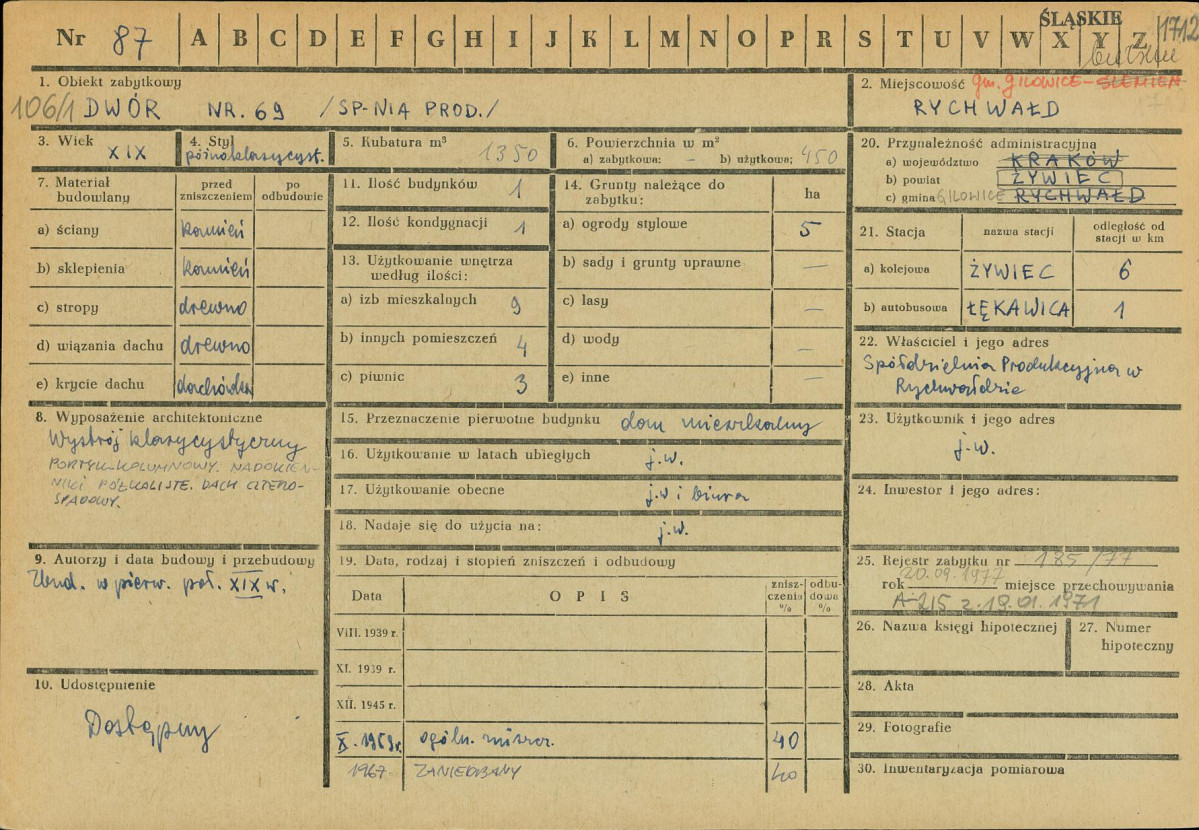 Nr 87 A B C D E F G H I J K L M N O P R S T U V W X Y Z
ŚLĄSKIE
1712
1. Obiekt zabytkowy
106/1 DWÓR NR. 69 /SP-NIA PROD./
2. Miejscowość gm. GILOWICE-ŚLEMIEŃ
RYCHWAŁD
3. Wiek
XIX
4. Styl
późnoklasycyst.
5. Kubatura m³
1350
6. Powierzchnia w m²
a) zabytkowa: – b) użytkowa; 450
20. Przynależność administracyjną
a) województwo KRAKÓW
b) powiat ŻYWIEC
c) gmina GILOWICE RYCHWAŁD
7. Materiał budowlany
przed zniszczeniem
po odbudowie
a) ściany kamień
b) sklepienia kamień
c) stropy drewno
d) wiązania dachu drewno
e) krycie dachu dachówka
11. Ilość budynków 1
12. Ilość kondygnacji 1
13. Użytkowanie wnętrza
według ilości:
a) izb mieszkalnych 9
b) innych pomieszczeń 4
c) piwnic 3
14. Grunty należące do
zabytku:
ha
a) ogrody stylowe 5
b) sady i grunty uprawne —
c) lasy —
d) wody —
e) inne —
21. Stacja
nazwa stacji
odległość od
stacji w km
a) kolejowa ŻYWIEC 6
b) autobusowa ŁĘKAWICA 1
22. Właściciel i jego adres
Spółdzielnia Produkcyjna w
Rychwałdzie
8. Wyposażenie architektoniczne
Wystrój klasycystyczny
PORTYK-KOLUMNOWY. NADOKIEN-
NIKI PÓŁKOLISTE. DACH CZTERO-
SPADOWY.
15. Przeznaczenie pierwotne budynku dom mieszkalny
16. Użytkowanie w latach ubiegłych j.w.
17. Użytkowanie obecne j.w i biura
18. Nadaje się do użycia na: j.w.
23. Użytkownik i jego adres
j.w.
24. Inwestor i jego adres:
9. Autorzy i data budowy i przebudowy
Zbud. w pierw. poł. XIX w.
19. Data, rodzaj i stopień zniszczeń i odbudowy
Data
OPIS
znisz-
czenia
%
odbu-
dowa
%
VIII. 1939 r.
XI. 1939 r.
XII. 1945 r.
X. 1959 r. ogóln. niszcz. 40
1967 ZANIEDBANY 40
25. Rejestr zabytku nr 185/77
20.09.1977
rok miejsce przechowywania
A-215 z 19.01.1971
26. Nazwa księgi hipotecznej
27. Numer
hipoteczny
10. Udostępnienie
Dostępny
28. Akta
29. Fotografie
30. Inwentaryzacja pomiarowa